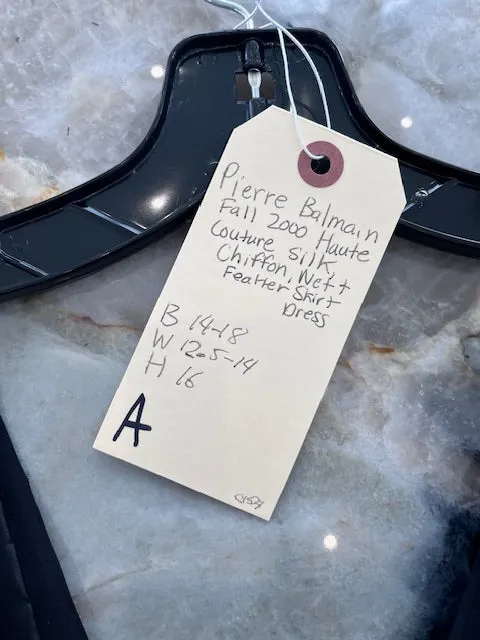 Pierre Balmain
Fall 2000 Haute
Couture silk,
Chiffon, Net +
Feather Skirt
Dress
B 14-18
W 12.5-14
H 16
A